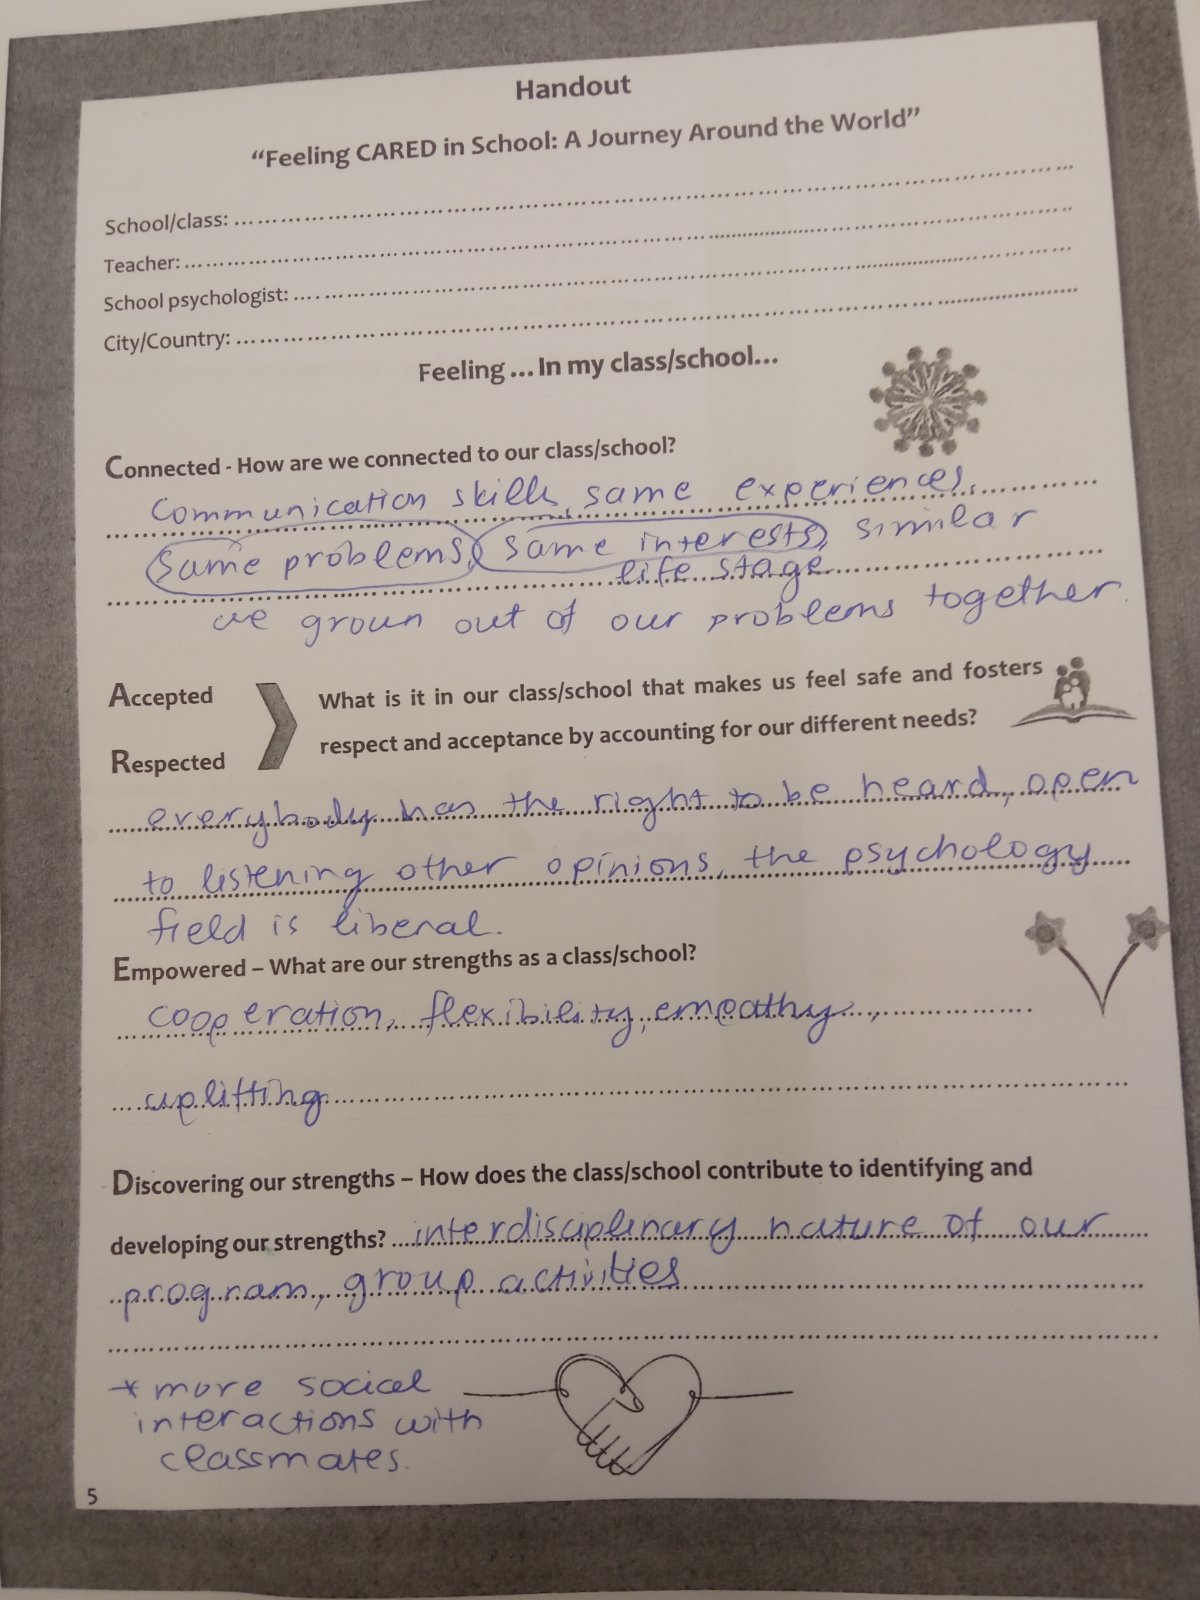 Handout
“Feeling CARED in School: A Journey Around the World”
School/class: ................................................
Teacher: ................................................
School psychologist: ................................................
City/Country: ................................................
Feeling ... In my class/school...
Connected - How are we connected to our class/school?
Communication skills, same experiences,
same problems, same interests, similar
life stage
we groun out of our problems together.
Accepted
What is it in our class/school that makes us feel safe and fosters
respect and acceptance by accounting for our different needs?
Respected
everybody has the right to be heard, open
to listening other opinions, the psychology
field is liberal.
Empowered – What are our strengths as a class/school?
cooperation, flexibility, empathy,
uplifting
Discovering our strengths – How does the class/school contribute to identifying and
developing our strengths? interdisciplinary nature of our
program, group activities
* more social
interactions with
classmates.
5